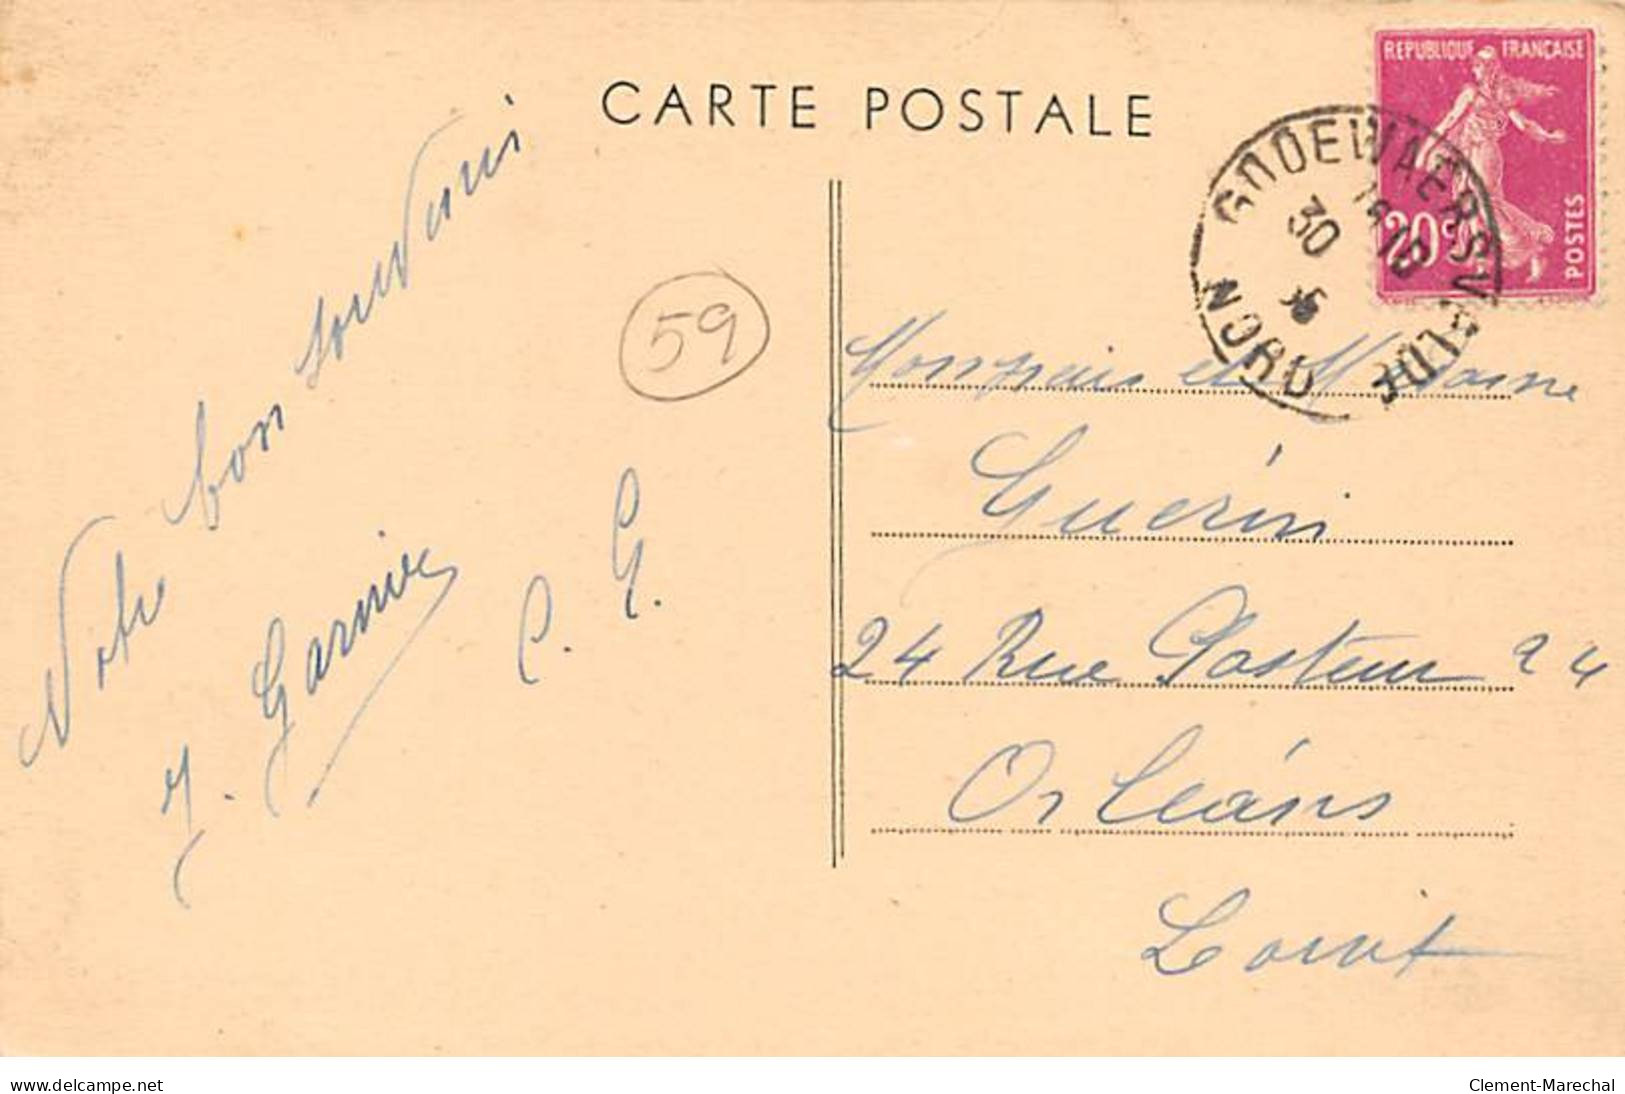 CARTE POSTALE
REPUBLIQUE FRANÇAISE
20c
POSTES
GODEWAERSVELDE
30
36
NORD
Notre bon souvenir
Garnier
C. G.
59
Monsieur et Madame
Guérin
24 Rue Pasteur 24
Orléans
Loiret
www.delcampe.net
Clement-Marechal